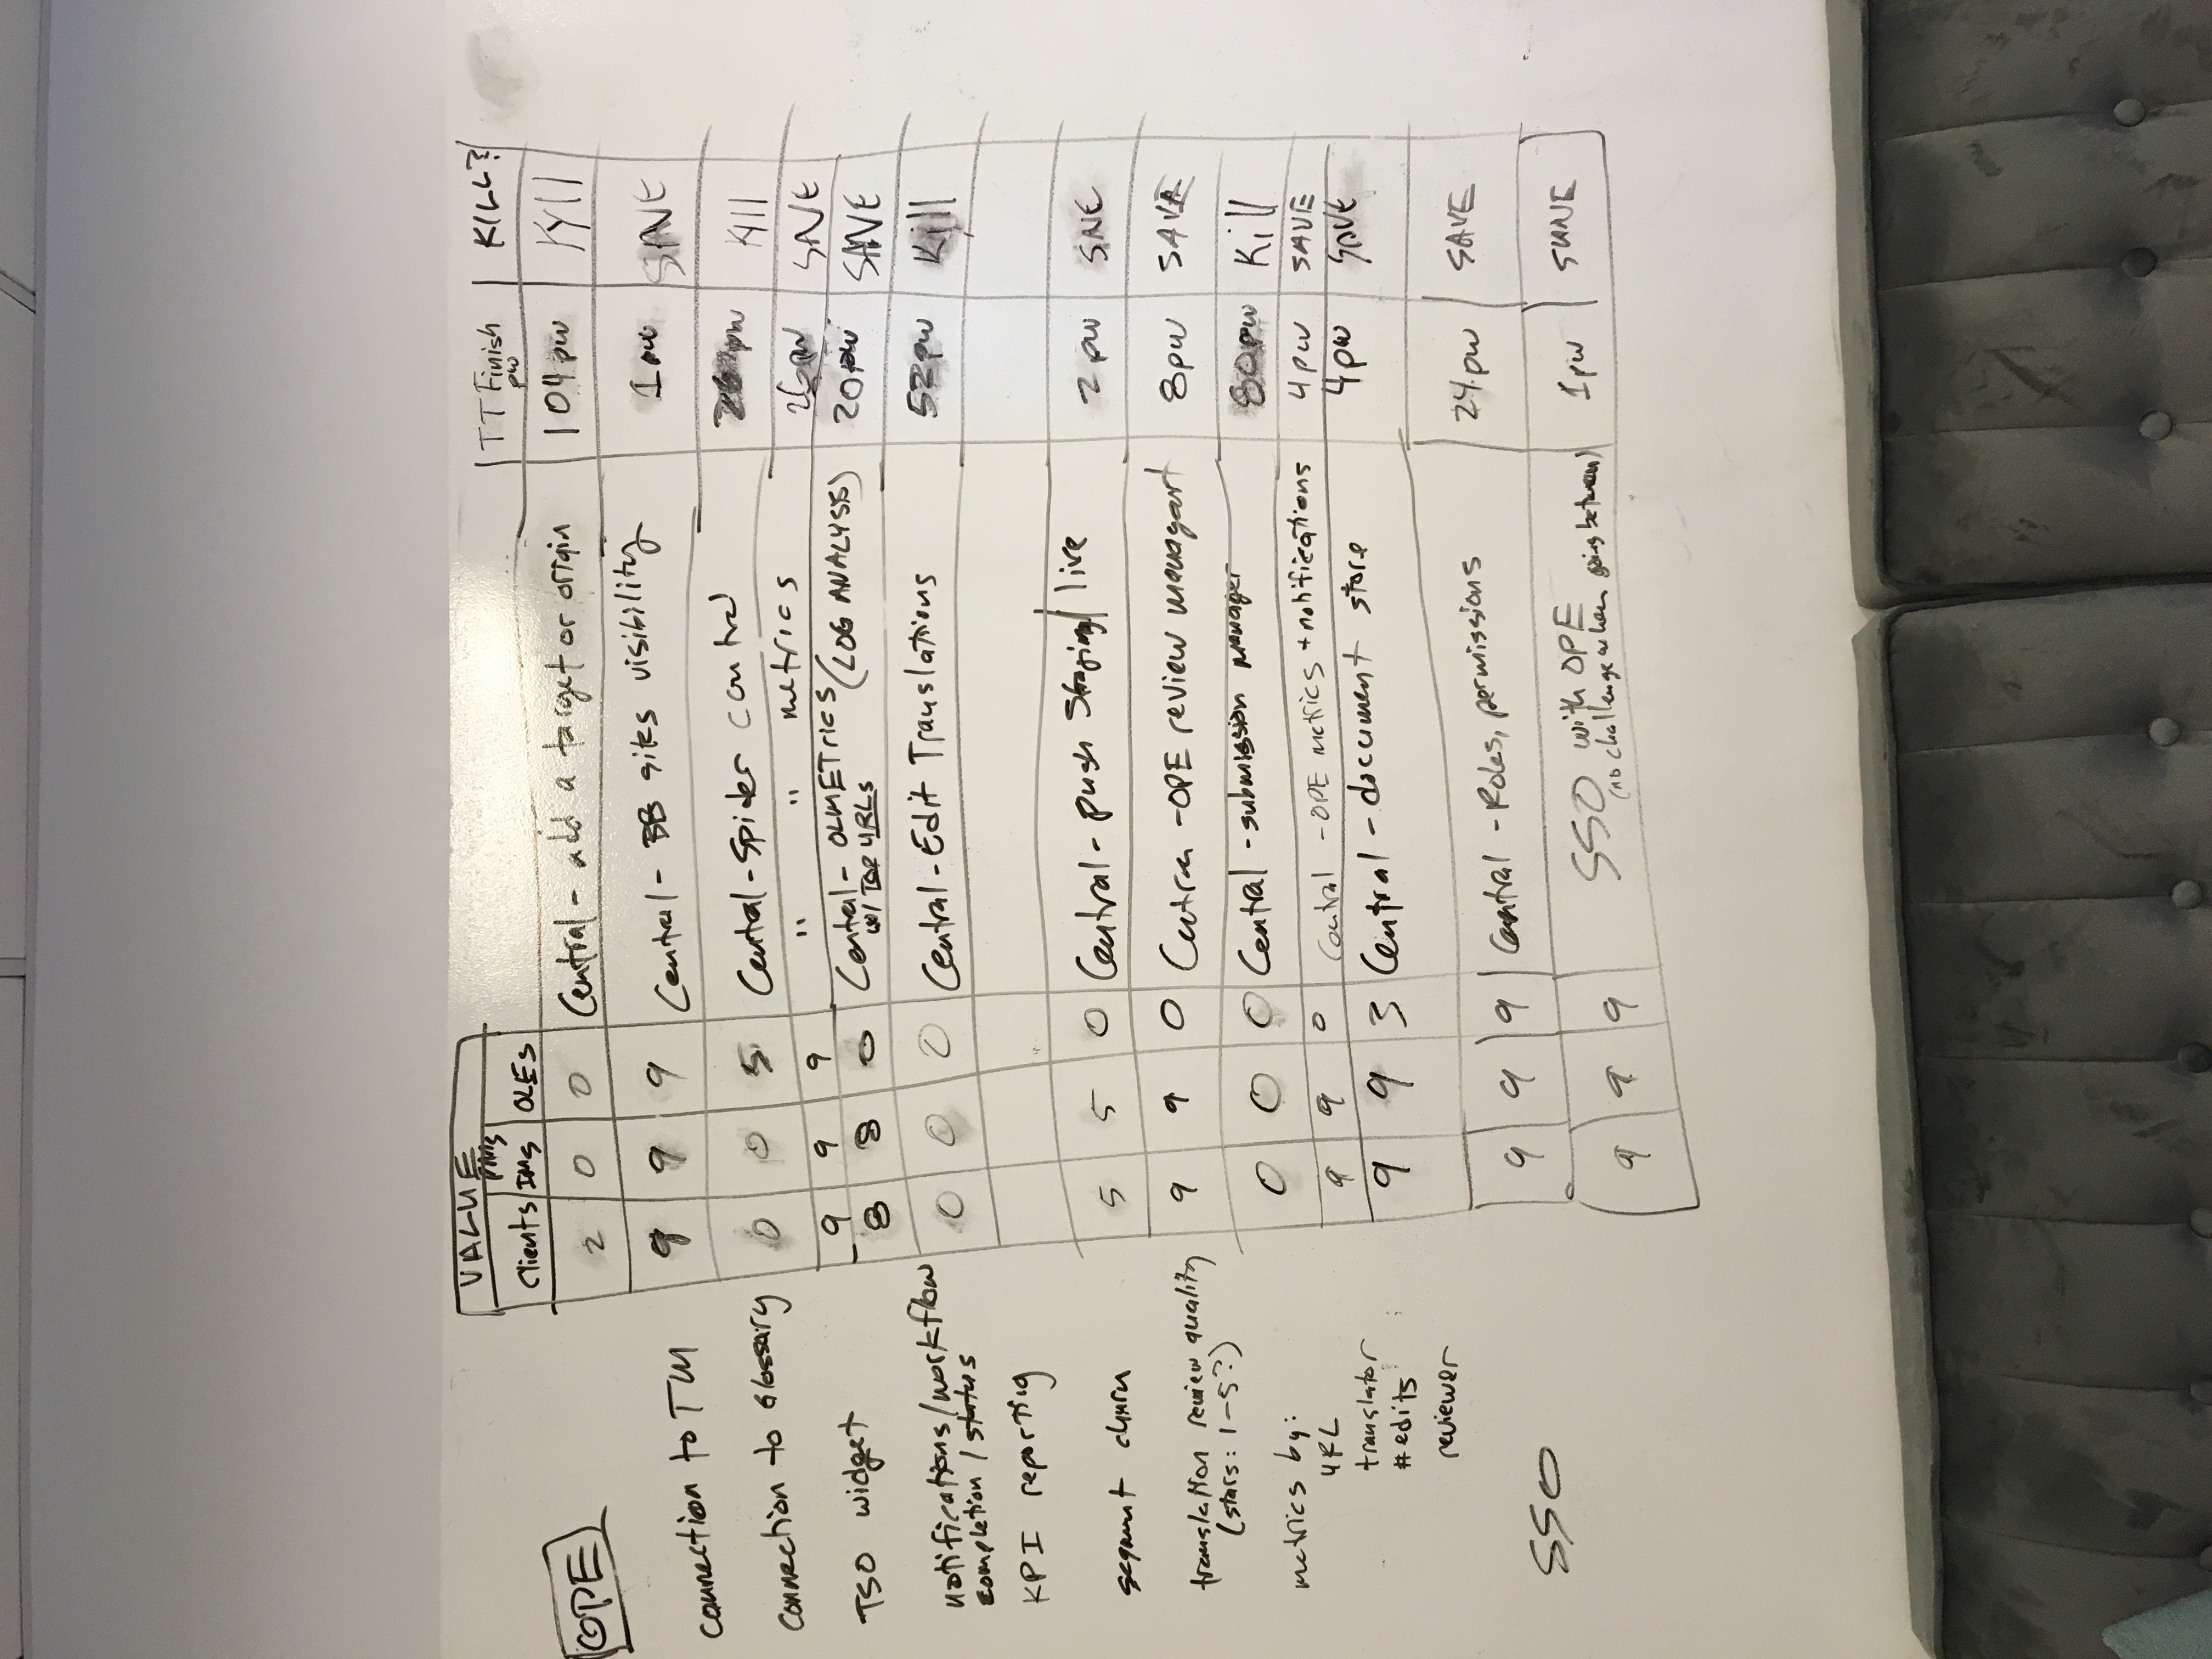 OPE
connection to TM
connection to Glossary
TSO widget
notifications/workflow
completion/status
KPI reporting
segment churn
translation review quality
(stars: 1-5?)
metrics by:
URL
translator
# edits
reviewer
SSO
VALUE
PMs
Clients IMs OLEs TT Finish KILL??
pw
2 0 0 Central - add a target or origin 104 pw Kill
9 9 9 Central - BB sites visibility 1 pw SAVE
0 0 5 Central - Spider control pw Kill
9 9 9 " " metrics 26pw SAVE
8 8 0 Central - OLMETrics (LOG ANALYSIS) 20pw SAVE
w/ TOP URLs
0 0 0 Central - Edit Translations 52pw Kill
5 5 0 Central - push Staging/live 2 pw SAVE
9 9 0 Central - OPE review managent 8pw SAVE
0 0 0 Central - submission manager 80pw Kill
9 9 0 Central - OPE metrics + notifications 4pw SAVE
9 9 3 Central - document store 4pw SAVE
9 9 9 Central - Roles, permissions 24pw SAVE
9 9 9 SSO with OPE 1pw SAVE
(no challenge when going between)